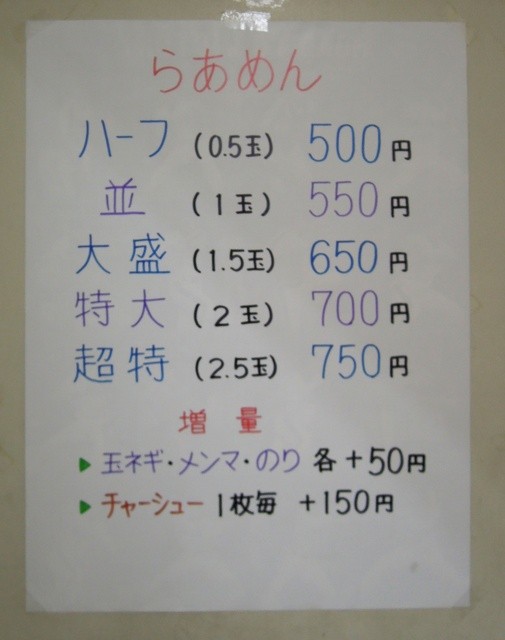 らあめん
ハーフ (0.5玉) 500円
並 (1玉) 550円
大盛 (1.5玉) 650円
特大 (2玉) 700円
超特 (2.5玉) 750円
増量
▶玉ネギ・メンマ・のり 各+50円
▶チャーシュー 1枚毎 +150円